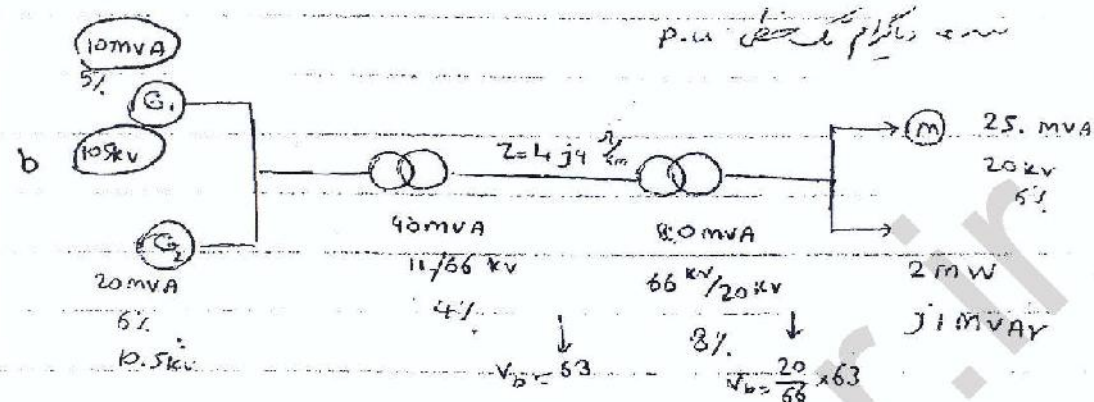 دیاگرام تک خطی p.u
10mvA
5%
G1
105kv
b
G2
20mVA
6%
10.5kv
40mvA
11/66 kv
4%
Vb = 63
Z=4 j4 Ω/km
80mvA
66 kv/20kv
8%
Vb = 20/66 x63
m
25. mvA
20kv
2mw
j1mvAr
r.ir